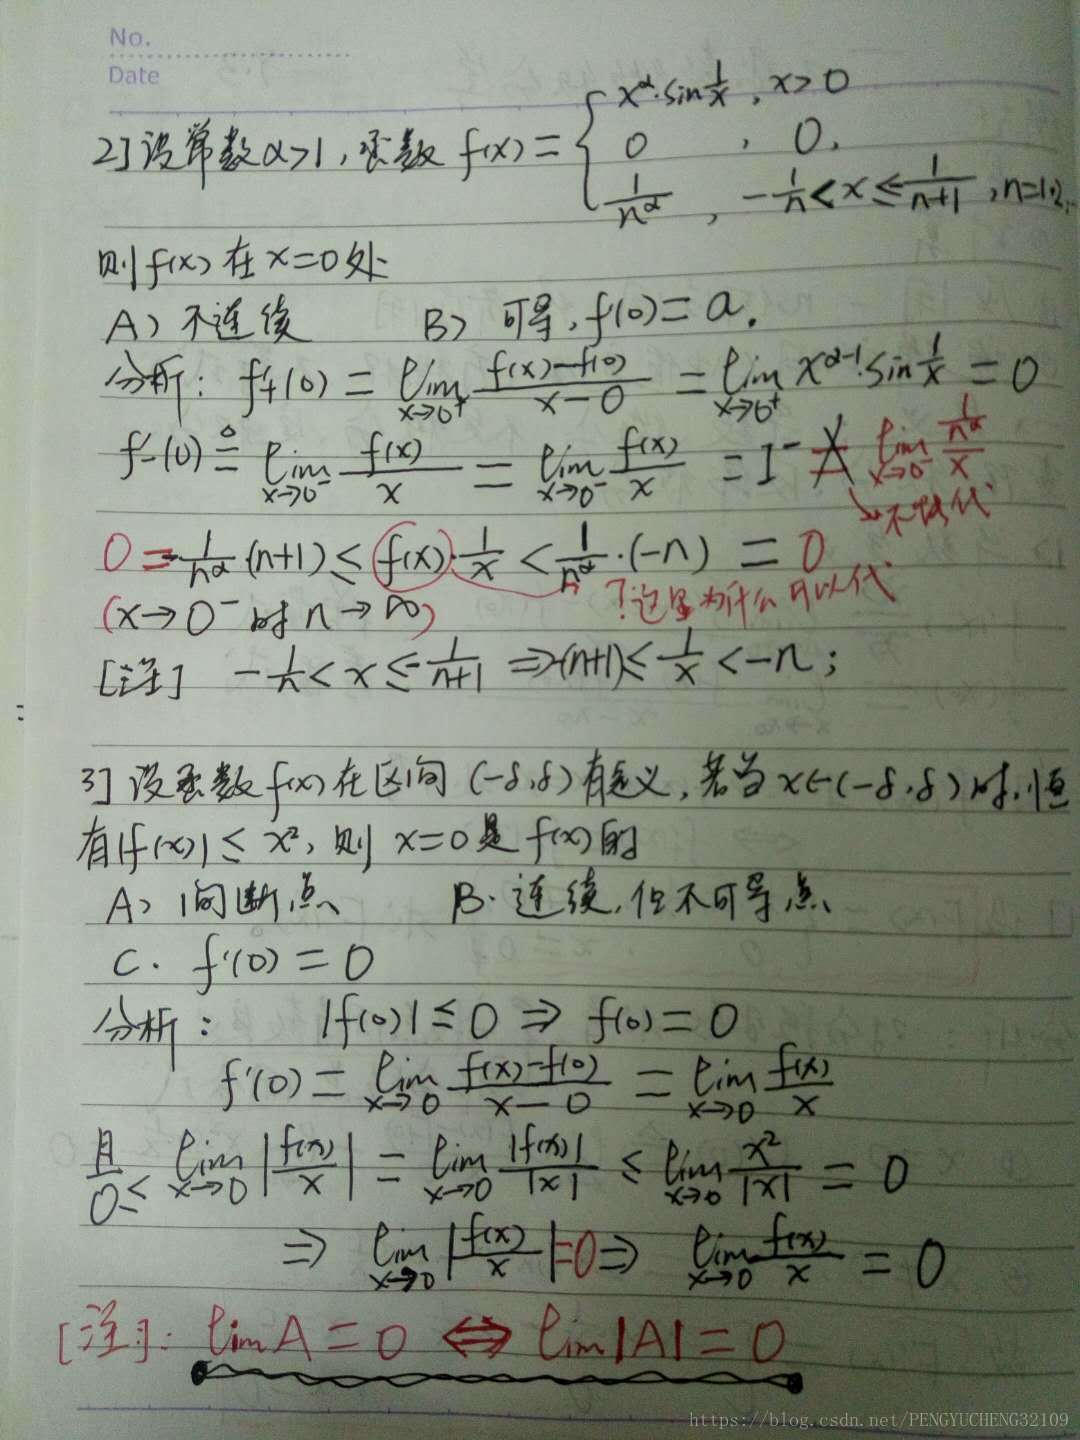 No.
Date
2] 设常数α>1, 函数 f(x) = { x^α·sin 1/x , x>0
0 , 0.
1/n^α , -1/n < x ≤ 1/(n+1) , n=1·2,..
则 f(x) 在 x=0处
A) 不连续 B) 可导, f'(0) = a.
分析: f'+(0) = lim x→0+ (f(x)-f(0))/(x-0) = lim x→0+ x^(α-1)·sin 1/x = 0
f'-(0) ≟ lim x→0- f(x)/x = lim x→0- f(x)/x = I- ≠ lim x→0- (1/n^α)/x
不能代
0 = -1/n^α (n+1) ≤ f(x)·1/x < 1/n^α ·(-n) = 0
(x→0- 时 n→∞) ?这里为什么可以代
[注] -1/n < x ≤ -1/(n+1) ⇒ -(n+1) ≤ 1/x < -n ;
3] 设函数 f(x) 在区间 (-δ,δ) 有定义, 若当 x∈(-δ,δ) 时, 恒
有 |f(x)| ≤ x², 则 x=0 是 f(x) 的
A) 间断点 B. 连续, 但不可导点
C. f'(0) = 0
分析: |f(0)| ≤ 0 ⇒ f(0) = 0
f'(0) = lim x→0 (f(x)-f(0))/(x-0) = lim x→0 f(x)/x
且 0 ≤ lim x→0 |f(x)/x| = lim x→0 |f(x)|/|x| ≤ lim x→0 x²/|x| = 0
⇒ lim x→0 |f(x)/x| = 0 ⇒ lim x→0 f(x)/x = 0
[注]: lim A = 0 ⇔ lim |A| = 0
https://blog.csdn.net/PENGYUCHENG32109